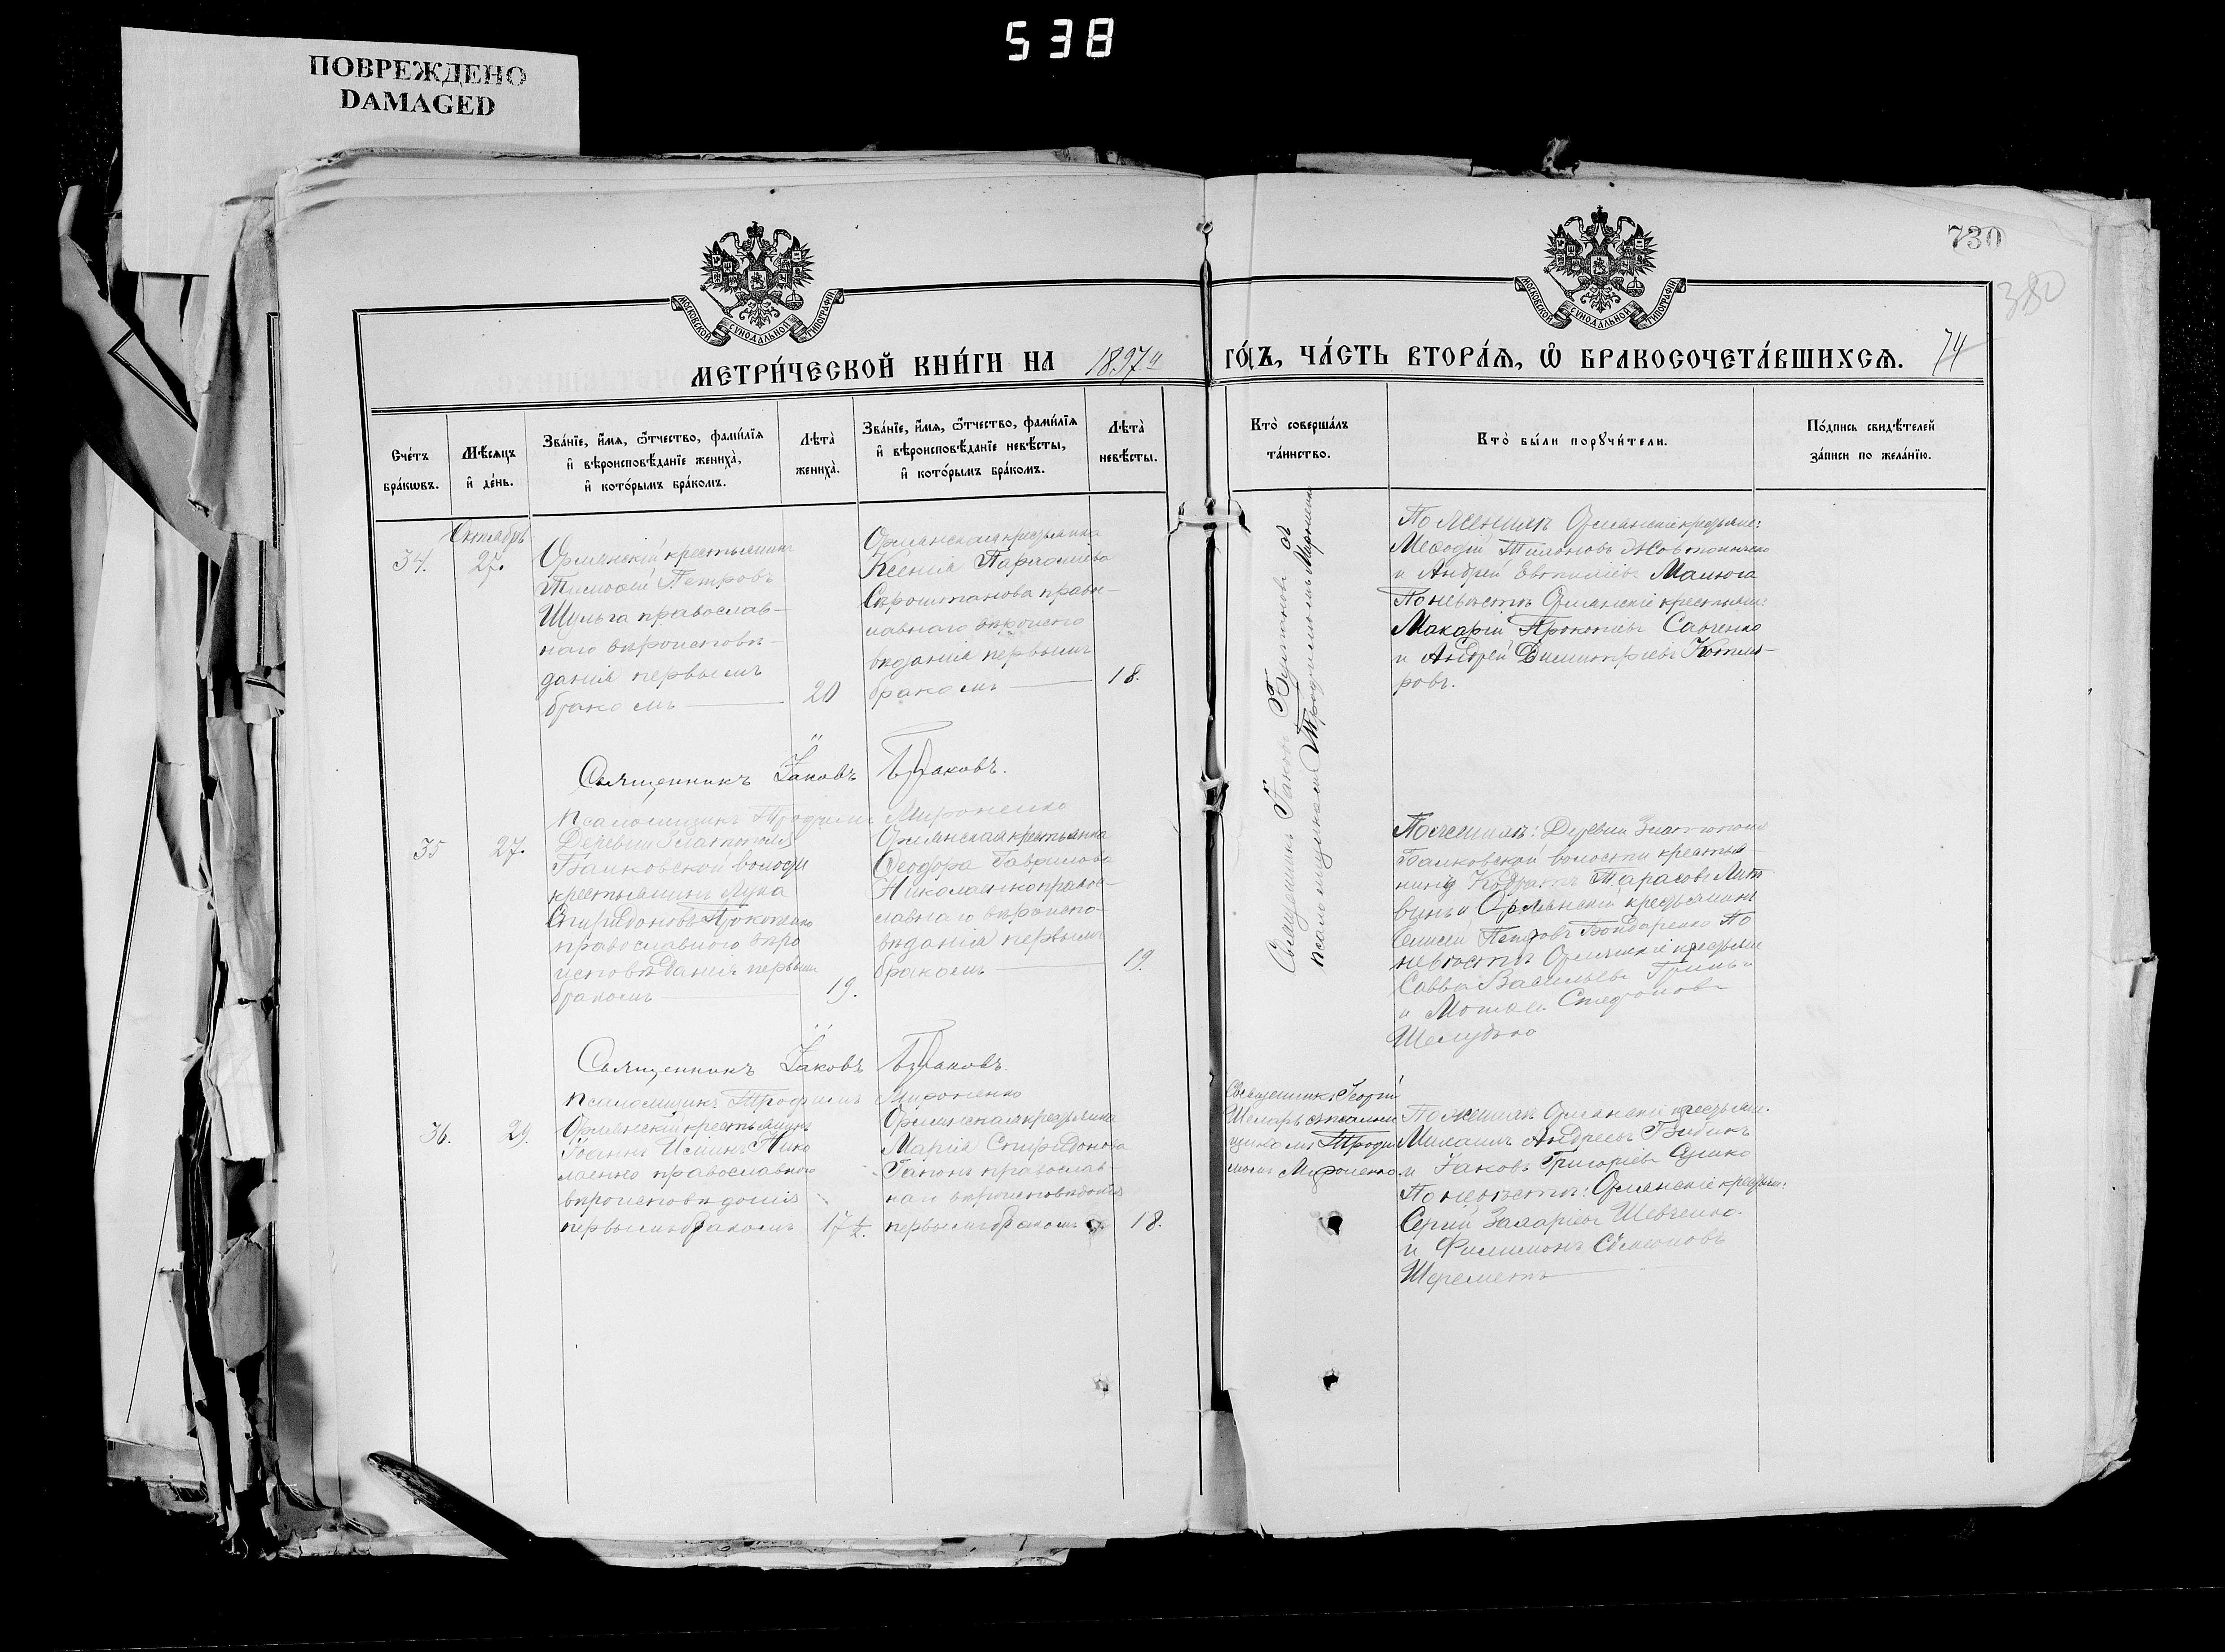 538
ПОВРЕЖДЕНО
DAMAGED
730
380
74
МОСКОВСКОЙ СѴНОДАЛЬНОЙ ТИПОГРАФІИ
МОСКОВСКОЙ СѴНОДАЛЬНОЙ ТИПОГРАФІИ
МЕТРИ́ЧЕСКОЙ КНИ́ГИ НА 1897й ГО́ДЪ, ЧА́СТЬ ВТОРА́Я, Ѽ БРАКОСОЧЕТА́ВШИХСЯ.
Сче́тъ
бра́кѡвъ.
Мѣ́сяцъ
и҆ де́нь.
Зва́нїе, и҆́мя, ѻ҆́тчество, фами́лїя
и҆ вѣроисповѣ́данїе жениха̀,
и҆ кото́рымъ бра́комъ.
Лѣта̀
жениха̀.
Зва́нїе, и҆́мя, ѻ҆́тчество, фами́лїя
и҆ вѣроисповѣ́данїе невѣ́сты,
и҆ кото́рымъ бра́комъ.
Лѣта̀
невѣ́сты.
Кто̀ соверша́лъ
та́инство.
Кто̀ бы́ли порꙋчи́тели.
По́дпись свидѣ́телей
за́писи по жела́нїю.
34.
Октябрь
27.
Орлянскій крестьянинъ
Тимофей Петровъ
Шульга православ-
наго вѣроисповѣ-
данія первымъ
бракомъ
20
Орлянская крестьянка
Ксенія
православнаго вѣроиспо
вѣданія первымъ
бракомъ
18.
Священникъ Іаковъ
псаломщикомъ Трофимомъ
По женихѣ Орлянскіе крестьяне:
Меѳодій
и Андрей Малюга
По невѣстѣ Орлянскіе крестьяне:
Макарій Прокопіевъ Савченко
и Андрей Димитріевъ Котля-
ровъ.
Священникъ Іаковъ
Псаломщикъ Трофимъ Мироненко
35
27.
Деревни Златополя
Балковской волости
крестьянинъ Лука
Спиридоновъ Прокопенко
православнаго вѣро
исповѣданія первымъ
бракомъ
19.
Орлянская крестьянка
Ѳеодора Гаврилова
Николаенко правос-
славнаго вѣроиспо-
вѣданія первымъ
бракомъ
19.
По женихѣ: Деревни Златополя
Балковской волости крестья-
нинъ Кодратъ Тарасовъ Лит
винъ и Орлянскій крестьянинъ
Елисей Петровъ Бондаренко По
невѣстѣ Орлянскіе крестьяне
Савва Васильевъ Гринь
и Стефановъ
Шелудько
Священникъ Іаковъ
Псаломщикъ Трофимъ Мироненко
36.
29.
Орлянскій крестьянинъ
Іоаннъ Нико
лаенко православнаго
вѣроисповѣданія
первымъ бракомъ
17½.
Орлянская крестьянка
Марія Спиридонова
Гапонъ православ-
наго вѣроисповѣданія
первымъ бракомъ
18.
Священникъ Георгій
съ псаломщикомъ Трофи
момъ Мироненко
По женихѣ Орлянскіе крестьяне.
Михаилъ Андреевъ Бабикъ
и Іаковъ Григоріевъ
По невѣстѣ: Орлянскіе крестьяне:
Сергій Захаріевъ Шевченко.
и Филимонъ Симеоновъ
Шереметъ